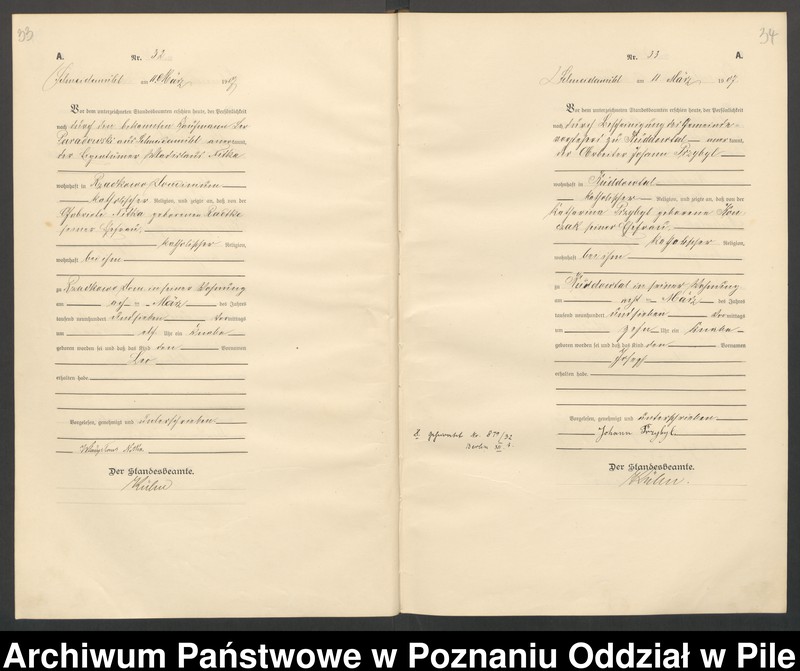 33
A.
Nr. 32
Schneidemühl am 11 März 1907
Vor dem unterzeichneten Standesbeamten erschien heute, der Persönlichkeit
nach durch den bekannten Kaufmann
aus Schneidemühl anerkannt,
der Nitka
wohnhaft in Radkowo
katholischer Religion, und zeigte an, daß von der
Nitka geborenen Radtke
seiner Ehefrau,
katholischer Religion,
wohnhaft bei ihm
zu Radkowo Dom. in seiner Wohnung
am acht März des Jahres
tausend neunhundert und sieben Vormittags
um elf Uhr ein Knabe
geboren worden sei und daß das Kind den Vornamen
Leo
erhalten habe.
Vorgelesen, genehmigt und unterschrieben
Nitka
Der Standesbeamte.
Kühn
34
Nr. 33
A.
Schneidemühl am 11 März 1907
Vor dem unterzeichneten Standesbeamten erschien heute, der Persönlichkeit
nach durch Bescheinigung der Gemeinde-
vorstehers zu Küddowtal anerkannt,
der Arbeiter Johann Przybyl
wohnhaft in Küddowtal
katholischer Religion, und zeigte an, daß von der
Katharina Przybyl geborene
seiner Ehefrau,
katholischer Religion,
wohnhaft bei ihm
zu Küddowtal in seiner Wohnung
am acht März des Jahres
tausend neunhundert und sieben Vormittags
um zehn Uhr ein Knabe
geboren worden sei und daß das Kind den Vornamen
Josef
erhalten habe.
Vorgelesen, genehmigt und unterschrieben
Johann Przybyl
Der Standesbeamte.
Kühn
Geheiratet Nr. 870/32
Berlin
Archiwum Państwowe w Poznaniu Oddział w Pile